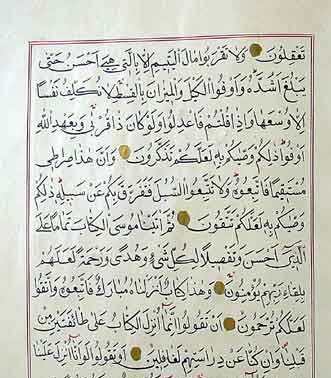 تعقلون ولا تقربوا مال اليتيم الا بالتي هي احسن حتى
يبلغ اشده واوفوا الكيل والميزان بالقسط لا نكلف نفسا
الا وسعها واذا قلتم فاعدلوا ولو كان ذا قربى وبعهد الله
اوفوا ذلكم وصيكم به لعلكم تذكرون وان هذا صراطي
مستقيما فاتبعوه ولا تتبعوا السبل فتفرق بكم عن سبيله ذلكم
وصيكم به لعلكم تتقون ثم اتينا موسى الكتاب تماما على
الذي احسن وتفصيلا لكل شيء وهدى ورحمة لعلهم
بلقاء ربهم يؤمنون وهذا كتاب انزلناه مبارك فاتبعوه واتقوا
لعلكم ترحمون ان تقولوا انما انزل الكتاب على طائفتين من
قبلنا وان كنا عن دراستهم لغافلين او تقولوا لو انا انزل علينا